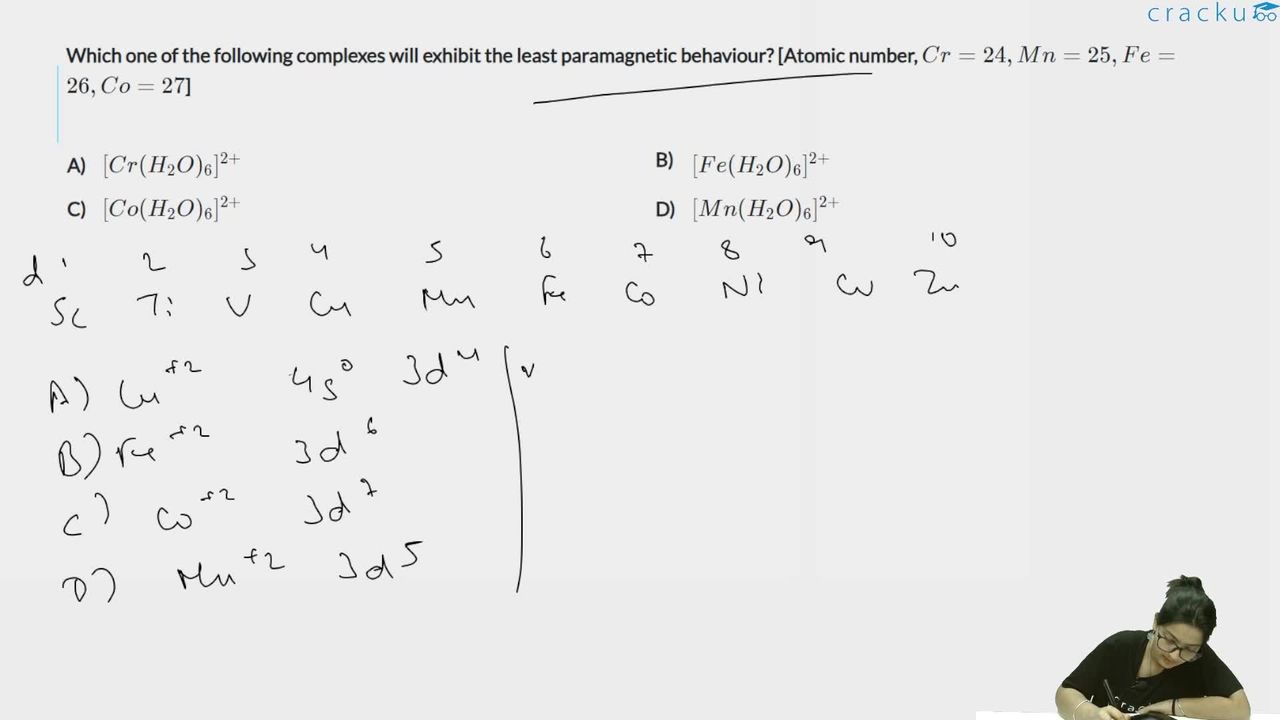 cracku
Which one of the following complexes will exhibit the least paramagnetic behaviour? [Atomic number, Cr = 24, Mn = 25, Fe =
26, Co = 27]
A) [Cr(H₂O)₆]²⁺ B) [Fe(H₂O)₆]²⁺
C) [Co(H₂O)₆]²⁺ D) [Mn(H₂O)₆]²⁺
d 1 2 3 4 5 6 7 8 9 10
Sc Ti V Cr Mn Fe Co Ni Cu Zn
A) Cr⁺² 4s⁰ 3d⁴
B) Fe⁺² 3d⁶
C) Co⁺² 3d⁷
D) Mn⁺² 3d⁵